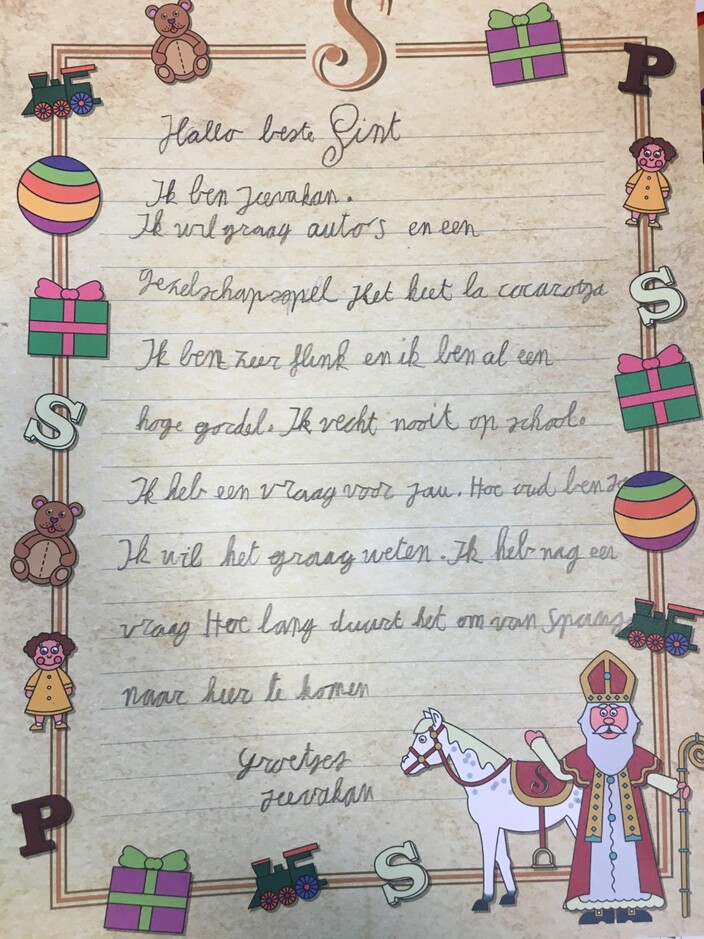 S
P
Hallo beste Sint
Ik ben Jeevakan.
Ik wil graag auto's en een
gezelschapsspel Het heet la cocarotza
S
Ik ben zeer flink en ik ben al een
hoge gordel. Ik vecht nooit op school.
S
Ik heb een vraag voor jou. Hoe oud ben je
Ik wil het graag weten. Ik heb nog een
vraag Hoe lang duurt het om van Spanje
naar hier te komen
Groetjes
Jeevakan
S
P
S